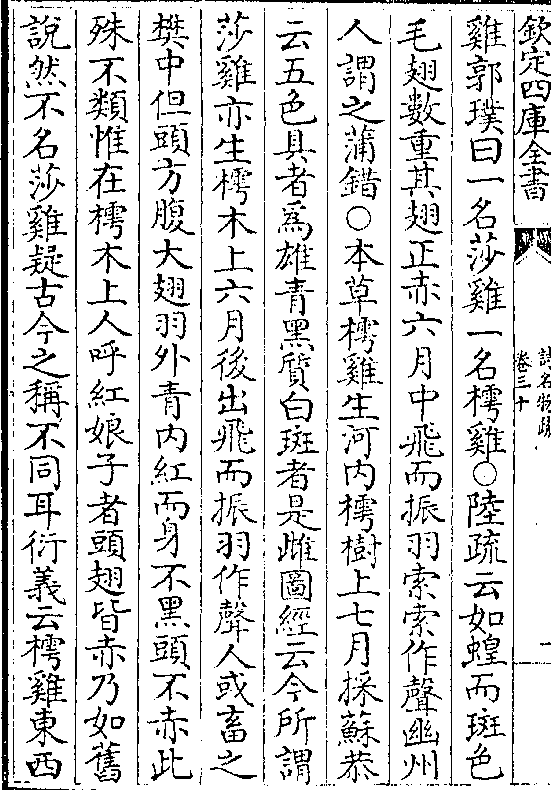 欽定四庫全書
詩名物疏
卷三十
一
雞郭璞曰一名莎雞一名樗雞○陸疏云如蝗而斑色
毛翅數重其翅正赤六月中飛而振羽索索作聲幽州
人謂之蒲錯○本草樗雞生河內樗樹上七月採蘇恭
云五色具者為雄青黑質白斑者是雌圖經云今所謂
莎雞亦生樗木上六月後出飛而振羽作聲人或畜之
樊中但頭方腹大翅羽外青內紅而身不黑頭不赤此
殊不類惟在樗木上人呼紅娘子者頭翅皆赤乃如舊
說然不名莎雞疑古今之稱不同耳衍義云樗雞東西